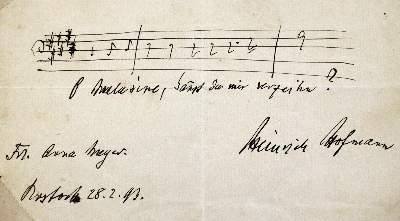 O Melusine, kannst du mir verzeihn?
Frl. Anna Meyer.
Heinrich Hofmann
Rostock 28.2.93.